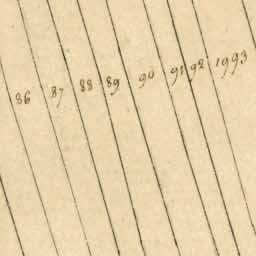 86 87 88 89 90 91 92 1993